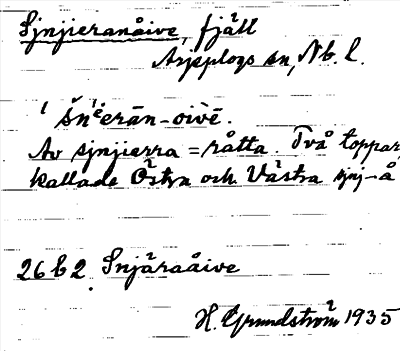 Sjnjieranåive, fjäll
Arjeplogs sn, Nb. l.
šn'ěerān-oivē.
Av sjnjierra = råtta. Två toppar,
kallade Östra och Västra sjnj-å
26 b 2. Snjäraåive
H. Grundström 1935